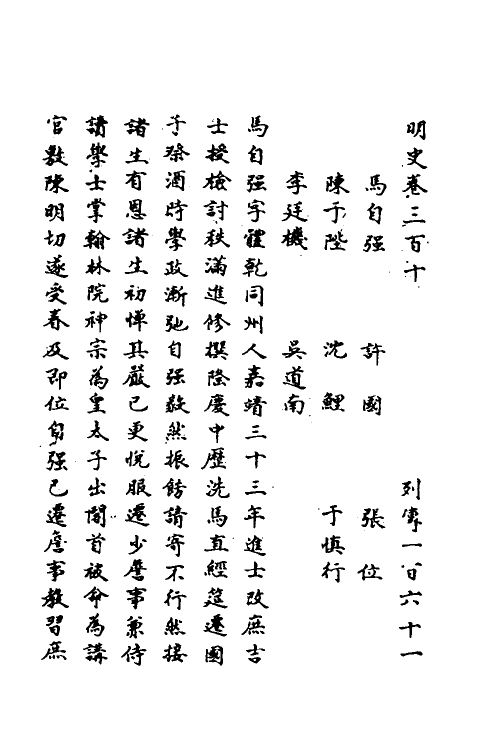 明史卷三百十　列傳一百六十一
馬自强　許國　張位
陳于陛　沈鯉　于慎行
李廷機　吳道南
馬自强字體乾同州人嘉靖三十三年進士改庶吉
士授檢討秩滿進修撰隆慶中歷洗馬直經筵遷國
子祭酒時學政漸弛自强毅然振飭請寄不行然接
諸生有恩諸生初憚其嚴已更悅服遷少詹事兼侍
讀學士掌翰林院神宗為皇太子出閣首被命為講
官敷陳明切遂受眷及即位自强已遷詹事教習庶